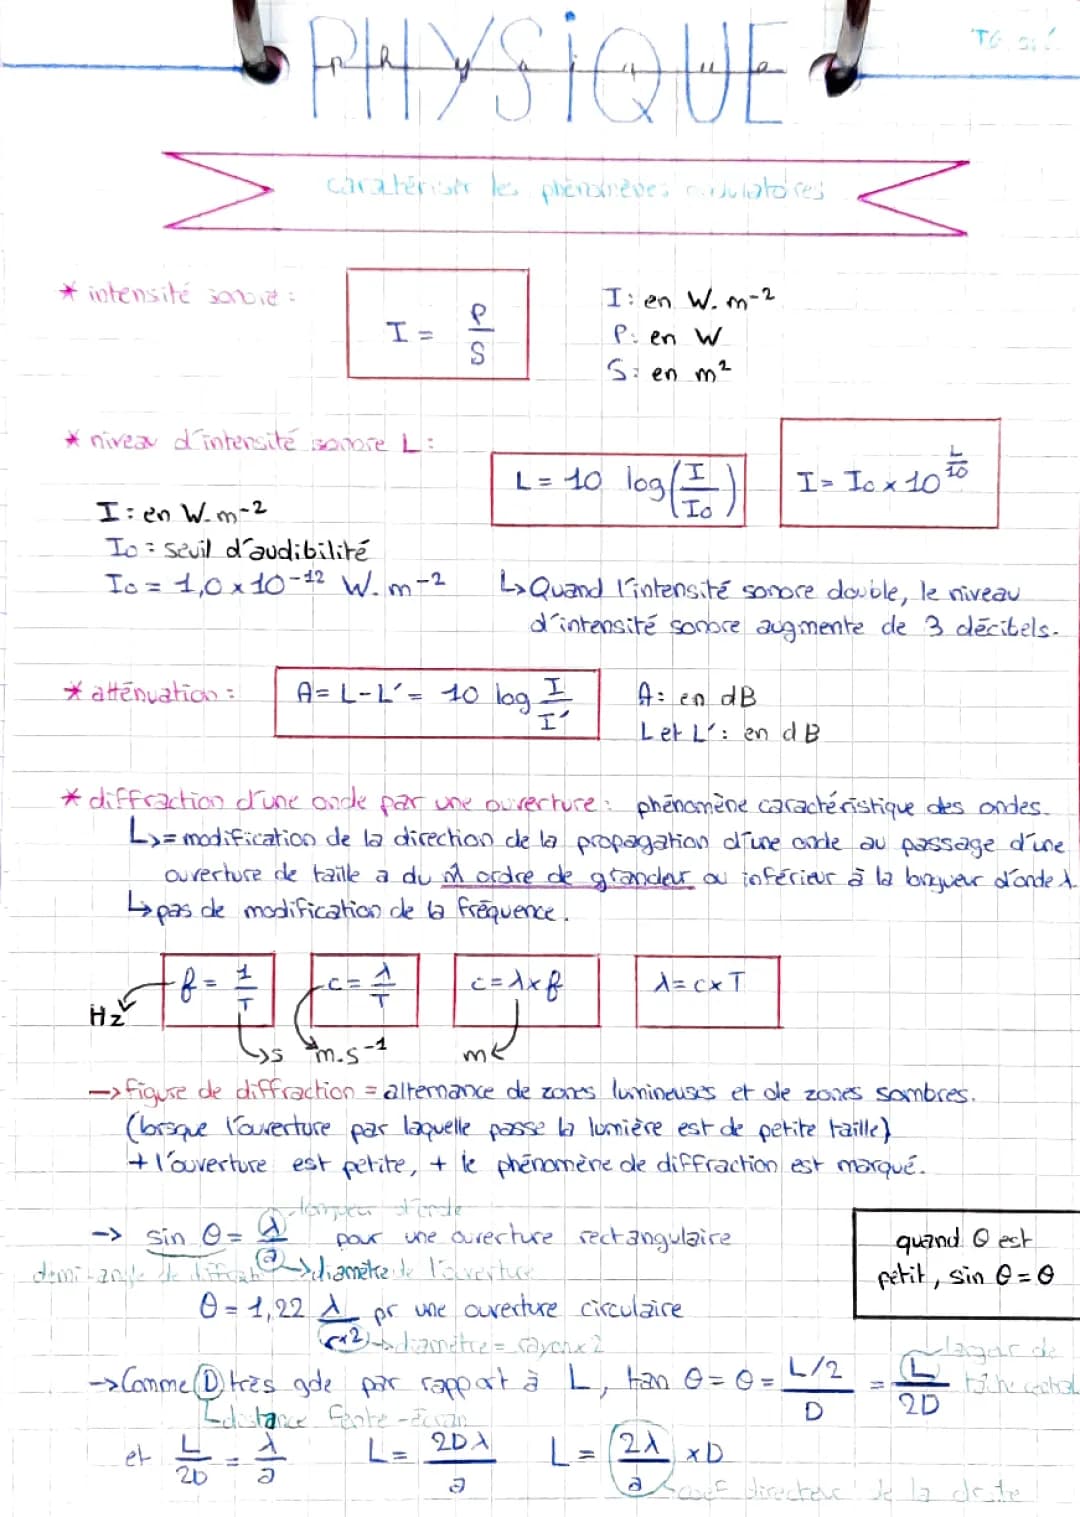 PHYSIQUE
Physique
caratériser les phénomènes ondulatoires
* intensité sonore :
I = P/S
I : en W.m-2
P : en W
S : en m²
* niveau d'intensité sonore L :
L = 10 log(I/I0)
I = I0 x 10^(L/10)
I : en W.m-2
I0 = seuil d'audibilité
I0 = 1,0 x 10-12 W.m-2
↳ Quand l'intensité sonore double, le niveau
d'intensité sonore augmente de 3 décibels.
* atténuation :
A = L - L' = 10 log I/I'
A : en dB
L et L' : en dB
* diffraction d'une onde par une ouverture : phénomène caractéristique des ondes.
↳ = modification de la direction de la propagation d'une onde au passage d'une
ouverture de taille a du m̂ ordre de grandeur ou inférieur à la longueur d'onde λ
↳ pas de modification de la fréquence.
f = 1/T
c = λ/T
c = λ x f
λ = c x T
Hz
s
m.s-1
m
-> figure de diffraction = alternance de zones lumineuses et de zones sombres.
(lorsque l'ouverture par laquelle passe la lumière est de petite taille)
+ l'ouverture est petite, + le phénomène de diffraction est marqué.
longueur d'onde
-> sin θ = λ/a pour une ouverture rectangulaire
demi-angle de diffraction
diamètre de l'ouverture
quand θ est
petit, sin θ = θ
θ = 1,22 λ/(r×2) pr une ouverture circulaire
diamètre = rayon x 2
-> Comme D très gde par rapport à L, tan θ = θ = L/2/D = L/2D
largeur de
tâche central
distance fente-écran
et L/2D = λ/a
L = 2Dλ/a
L = 2λ/a x D
coef directeur de la droite